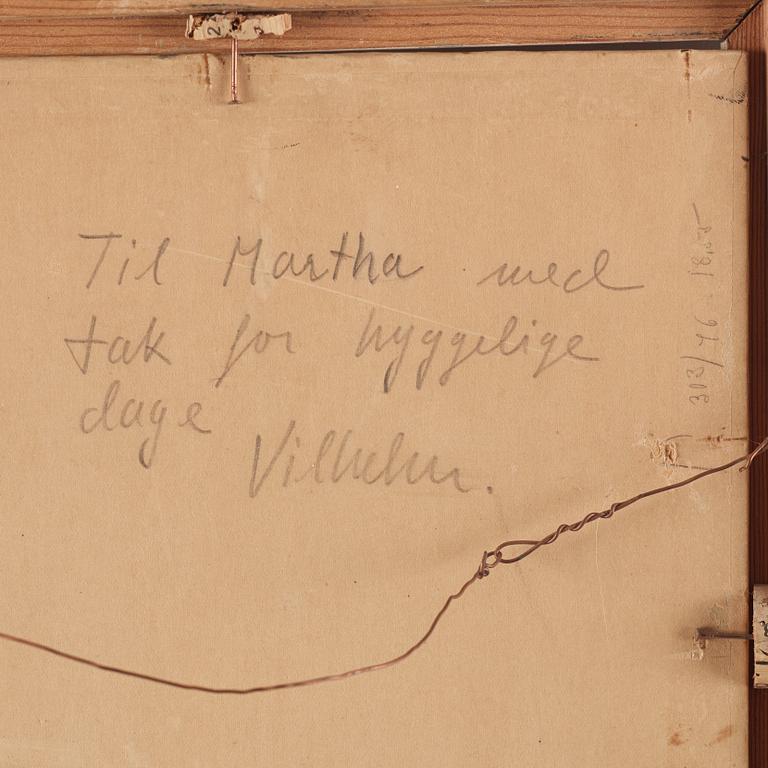 Til Martha med
tak for hyggelige
dage
Vilhelm.
303/46